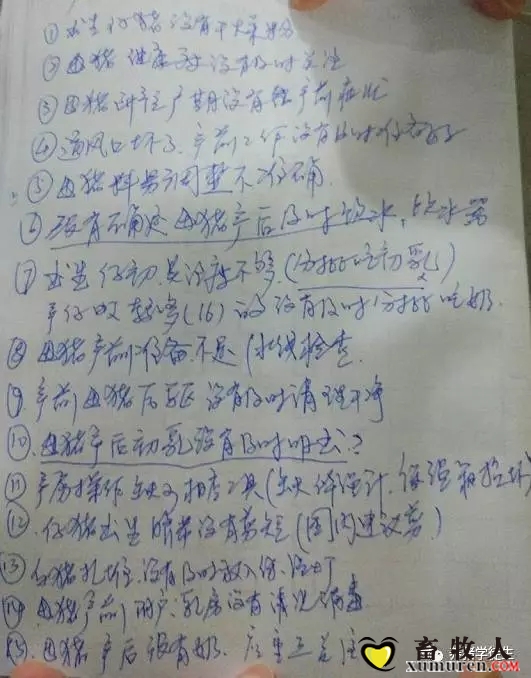 ① 出生仔猪没有干燥粉
② 母猪健康 没有及时关注
③ 母猪 产 期没有 产前症状
④ 通风口坏了、产前工作没有及时准备好
⑤ 母猪料量调整不准确
⑥ 没有确定母猪产后及时饮水,饮水器
⑦ 出生仔 不够,(分批吃初乳)
产仔 较多(16)的没有及时分批吃奶.
⑧ 母猪产前准备不足( 检查
⑨ 产前母猪后躯没有及时清理干净
⑩. 母猪产后初乳没有及时 ?
⑪ 产房操作缺乏 工具(缺 温计,保温箱 坏)
⑫. 仔猪出生脐带没有剪短(国内建议剪)
⑬ 仔猪扎堆.没有及时放入保温
⑭. 母猪产前 户、乳房没有清洗消毒
⑮. 母猪产后没有奶. 注
畜牧人
xumuren.cn
.com